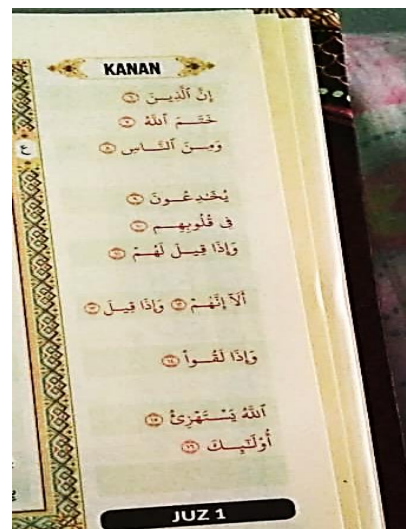 KANAN
إِنَّ ٱلَّذِينَ ٦
خَتَمَ ٱللَّهُ ٧
وَمِنَ ٱلنَّاسِ ٨
يُخَـٰدِعُونَ ٩
فِى قُلُوبِهِم ١٠
وَإِذَا قِيلَ لَهُمْ ١١
أَلَآ إِنَّهُمْ ١٢ وَإِذَا قِيلَ ١٣
وَإِذَا لَقُوا۟ ١٤
ٱللَّهُ يَسْتَهْزِئُ ١٥
أُو۟لَـٰٓئِكَ ١٦
JUZ 1
ع